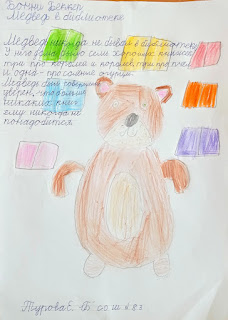 Бонни Беккер
Медведь в библиотеке
Медведь никогда не бывал в библиотеке
У него дома было семь хороших книжек:
три про королей и королев, три про пчел
и одна - про соление огурцов.
Медведь был совершенно
уверен, что больше
никаких книг
ему никогда не
понадобится.
Турова Е.